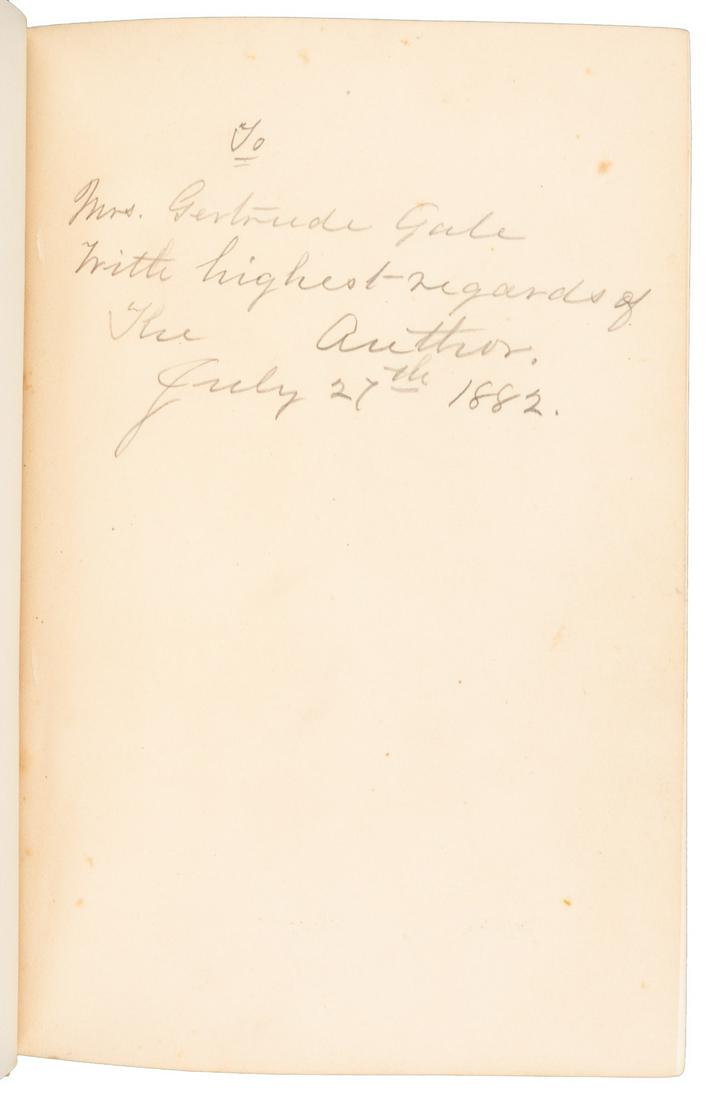 To
Mrs. Gertrude Gale
With highest regards of
The Author.
July 27th 1882.